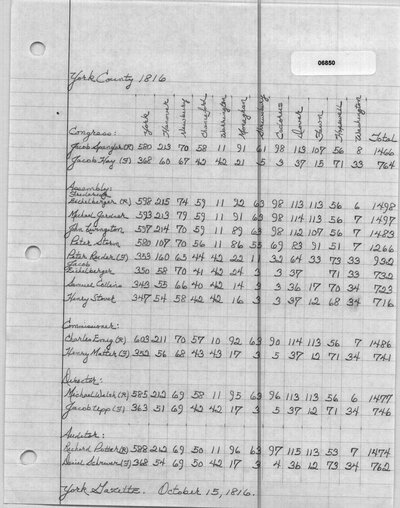 06850
York County 1816
York Hanover Newbury Chanceford Warrington Monaghan Shrewsbury Codorus Dover Fawn Hopewell Washington Total
Congress:
Jacob Spangler (R) 580 213 70 58 11 91 61 98 113 107 56 8 1466
Jacob Hay (F) 368 60 67 42 42 21 5 3 37 15 71 33 764
Assembly:
Frederick
Eichelberger (R) 598 215 74 59 11 92 63 98 113 113 56 6 1498
Michael Gardner 593 213 79 59 11 91 63 98 114 113 56 7 1497
John Livingston 597 214 70 59 11 89 63 98 112 107 56 7 1483
Peter Storm 580 107 70 56 11 86 55 69 83 91 51 7 1266
Peter Reider (F) 353 160 65 44 42 22 11 32 64 33 73 33 932
Jacob
Eichelberger 350 58 70 41 42 24 3 3 37 71 33 732
Samuel Collins 343 55 66 40 42 14 3 3 36 17 70 34 723
Henry Stover 347 54 58 42 42 16 3 3 37 12 68 34 716
Commissioner:
Charles Emig (R) 603 211 70 57 10 92 63 90 114 113 56 7 1486
Henry Matter (F) 352 56 68 43 43 17 3 5 37 12 71 34 741
Director:
Michael Welsh (R) 585 212 69 58 11 95 63 96 113 113 56 6 1477
Jacob Upp (F) 363 51 69 42 42 17 3 5 37 12 71 34 746
Auditor:
Richard (R) 588 212 69 50 11 96 63 97 115 113 53 7 1474
Daniel (F) 368 54 69 50 42 17 3 4 36 12 73 34 762
York Gazette. October 15, 1816.